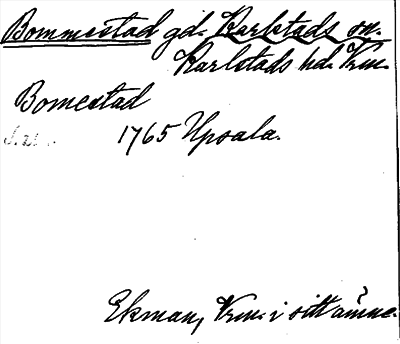 Bommestad gd. Karlstads sn.
Karlstads hd. Vrm.
Bomestad
1765 Upsala.
Ekman, Vrm. i sitt ämne.